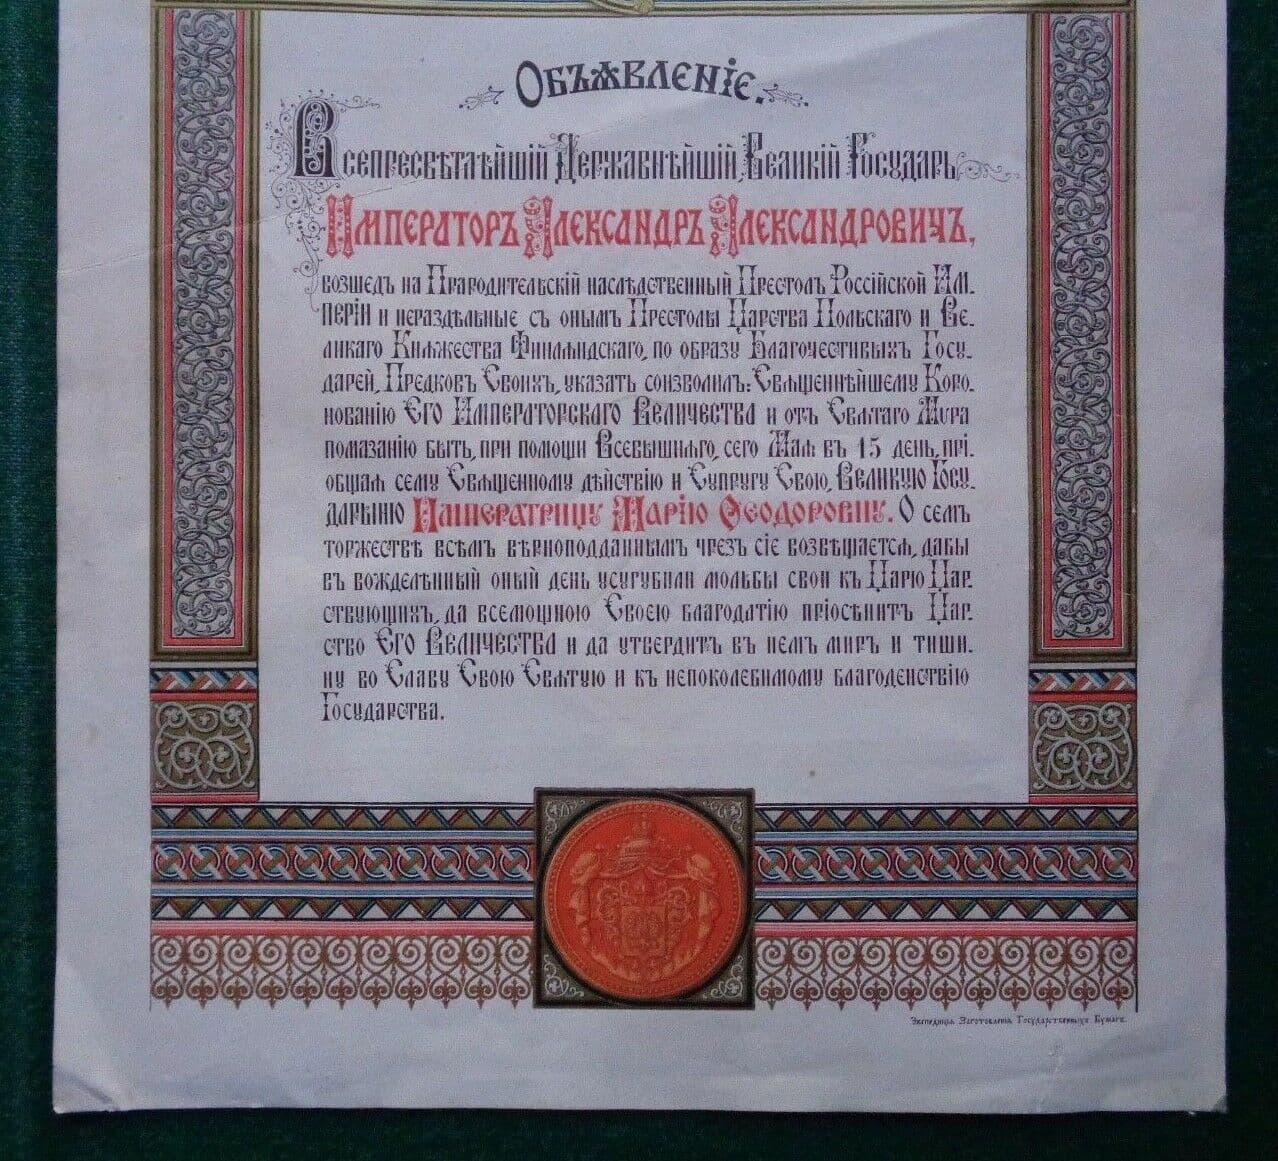 Объѧвленіе.
Всепресвѣтлѣйшій Державнѣйшій, Великій Государь,
Императоръ Александръ Александровичъ,
возшедъ на Прародительскій наслѣдственный Престолъ Россійской Им-
періи и нераздѣльные съ онымъ Престолы Царства Польскаго и Ве-
ликаго Кнѧжества Финлѧндскаго, по образу Благочестивыхъ Госу-
дарей, Предковъ Своихъ, указать соизволилъ: Свѧщеннѣйшему Коро-
нованію Его Императорскаго Величества и отъ Свѧтаго Мѵра
помазанію быть, при помощи Всевышнѧго, сего Маѧ въ 15 день, прі-
общаѧ сему Свѧщенному дѣйствію и Супругу Свою, Великую Госу-
дарыню Императрицу Марію Ѳеодоровну. О семъ
торжествѣ всѣмъ вѣрноподданнымъ чрезъ сіе возвѣщаетсѧ, дабы
въ вожделѣнный оный день усугубили мольбы свои къ Царю Цар-
ствующихъ, да всемощною Своею благодатію пріосѣнитъ Цар-
ство Его Величества и да утвердитъ въ немъ миръ и тиши-
ну во Славу Свою Свѧтую и къ непоколебимому благоденствію
Государства.
Экспедицїѧ Заготовленїѧ Государственныхъ Бумагъ.